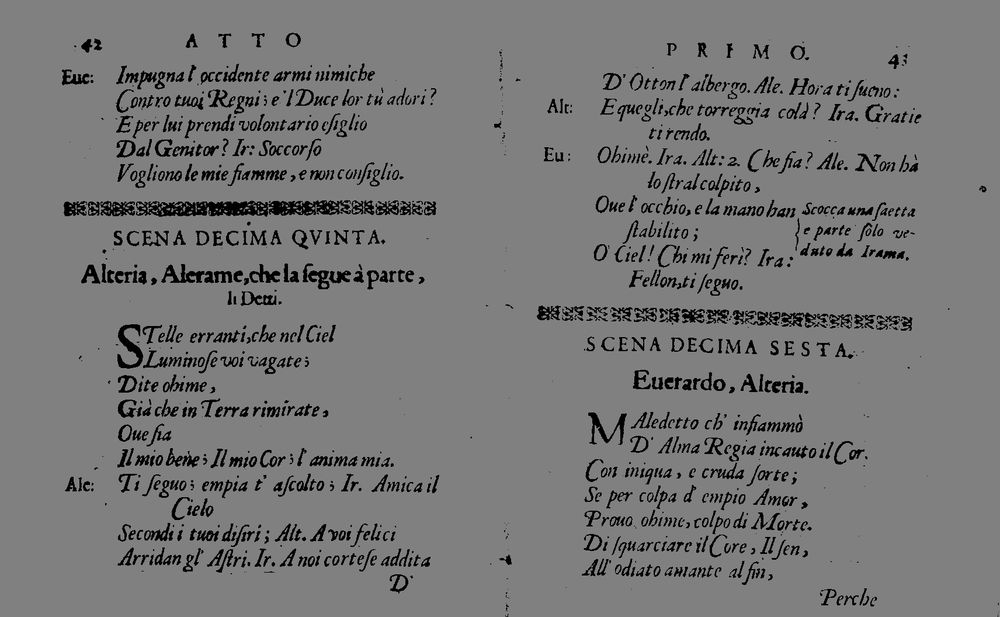 42 ATTO
Eue: Impugna l' occidente armi nimiche
Contro tuoi Regni; e 'l Duce lor tù adori?
E per lui prendi volontario esiglio
Dal Genitor? Ir: Soccorso
Vogliono le mie fiamme, e non consiglio.
SCENA DECIMA QVINTA.
Alteria, Alerame, che la segue à parte,
li Detti.
STelle erranti, che nel Ciel
Luminose voi vagate;
Dite ohime,
Già che in Terra rimirate,
Oue sia
Il mio bene; Il mio Cor; l' anima mia.
Ale: Ti seguo; empia t' ascolto; Ir. Amica il
Cielo
Secondi i tuoi disiri; Alt. A voi felici
Arridan gl' Astri. Ir. A noi cortese addita
D
PRIMO. 43
D' Otton l' albergo. Ale. Hora ti sueno:
Alt: E quegli, che torreggia colà? Ira. Gratie
ti rendo.
Eu: Ohimè. Ira. Alt: 2. Che fia? Ale. Non hà
lo stral colpito,
Oue l' occhio, e la mano han
stabilito;
O Ciel! Chi mi ferì? Ira:
Scocca una saetta
e parte solo ve-
duto da Irama.
Fellon, ti seguo.
SCENA DECIMA SESTA.
Euerardo, Alteria.
MAledetto ch' infiammò
D' Alma Regia incauto il Cor.
Con iniqua, e cruda sorte;
Se per colpa d' empio Amor,
Prouo ohime, colpo di Morte.
Di squarciare il Core, Il sen,
All' odiato amante al fin,
Perche